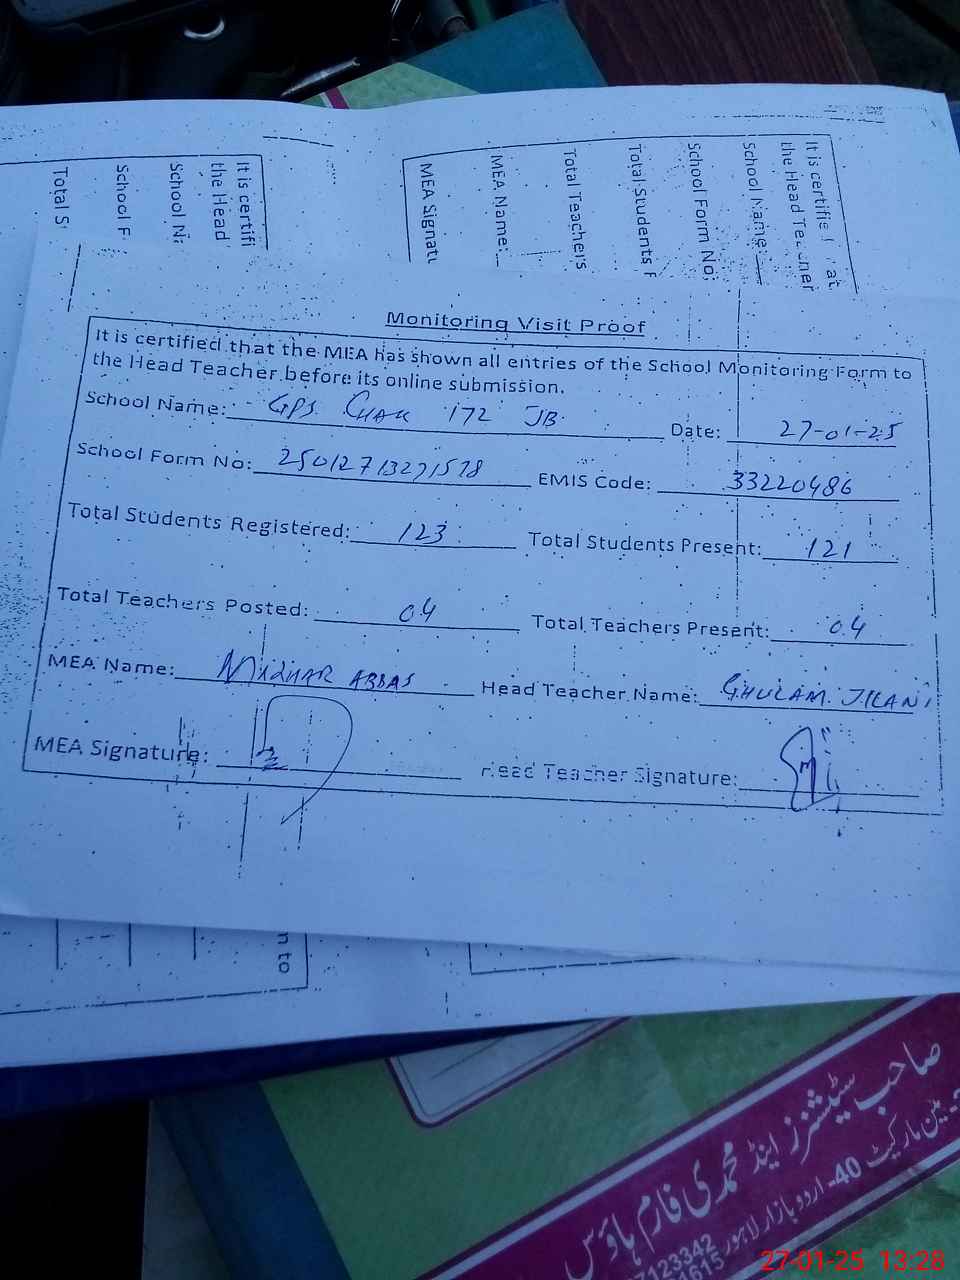 It is certifi
the Head
School Na
School F
Total S
It is certified at
the Head Teacher
School Name:
School Form No:
Total Students R
Total Teachers
MEA Name:
MEA Signatu
Monitoring Visit Proof
It is certified that the MEA has shown all entries of the School Monitoring Form to
the Head Teacher before its online submission.
School Name: GPS CHAK 172 JB Date: 27-01-25
School Form No: 25012713271578 EMIS Code: 33220486
Total Students Registered: 123 Total Students Present: 121
Total Teachers Posted: 04 Total Teachers Present: 04
MEA Name: MAZHAR ABBAS Head Teacher Name: GHULAM JILANI
MEA Signature: Head Teacher Signature:
n to
صاحب سٹیشنرز اینڈ محمدی فارم ہاؤس
مین مارکیٹ 40- اردو بازار لاہور
7123342
1615
27-01-25 13:28